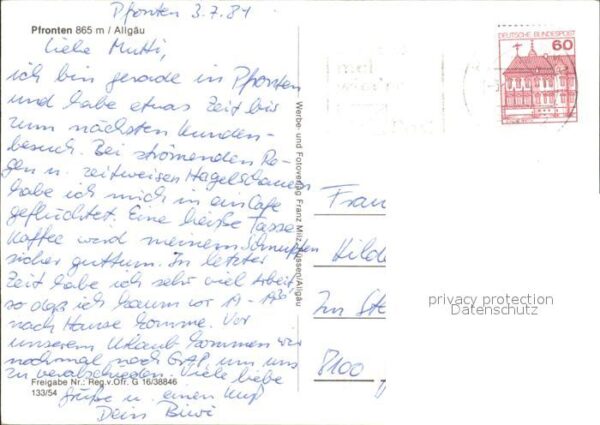 Pfronten 3.7.81
Pfronten 865 m / Allgäu
Liebe Mutti,
ich bin gerade in Pfronten
und habe etwas Zeit bis
zum nächsten Kunden-
besuch. Bei strömenden Re-
gen u. zeitweisen Hagelschauern
habe ich mich in ein Cafe
geflüchtet. Eine heiße Tasse
Kaffee wird meinem Schnupfen
sicher guttun. In letzter
Zeit habe ich sehr viel Arbeit,
so daß ich kaum vor
nach Hause komme. Vor
unserem Urlaub kommen wir
nochmal nach GAP, um uns
zu verabschieden. Viele liebe
Freigabe Nr.: Reg.v.Ofr. G 16/38846
133/54
Grüße u. einen Kuß
Dein
Werbe- und Fotoverlag Franz Milz, Füssen/Allgäu
DEUTSCHE BUNDESPOST
60
Hilde
8100
privacy protection
Datenschutz